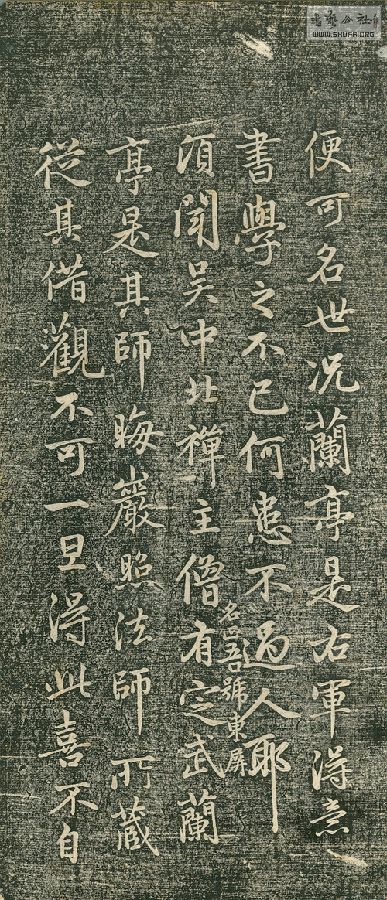 便可名世況蘭亭是右軍得意
書學之不已何患不過人耶
名正吾號東屏
頃聞吳中北禪主僧有定武蘭
亭是其師晦巖照法師所藏
從其借觀不可一旦得此喜不自
書藝公社
WWW.SHUFA.ORG